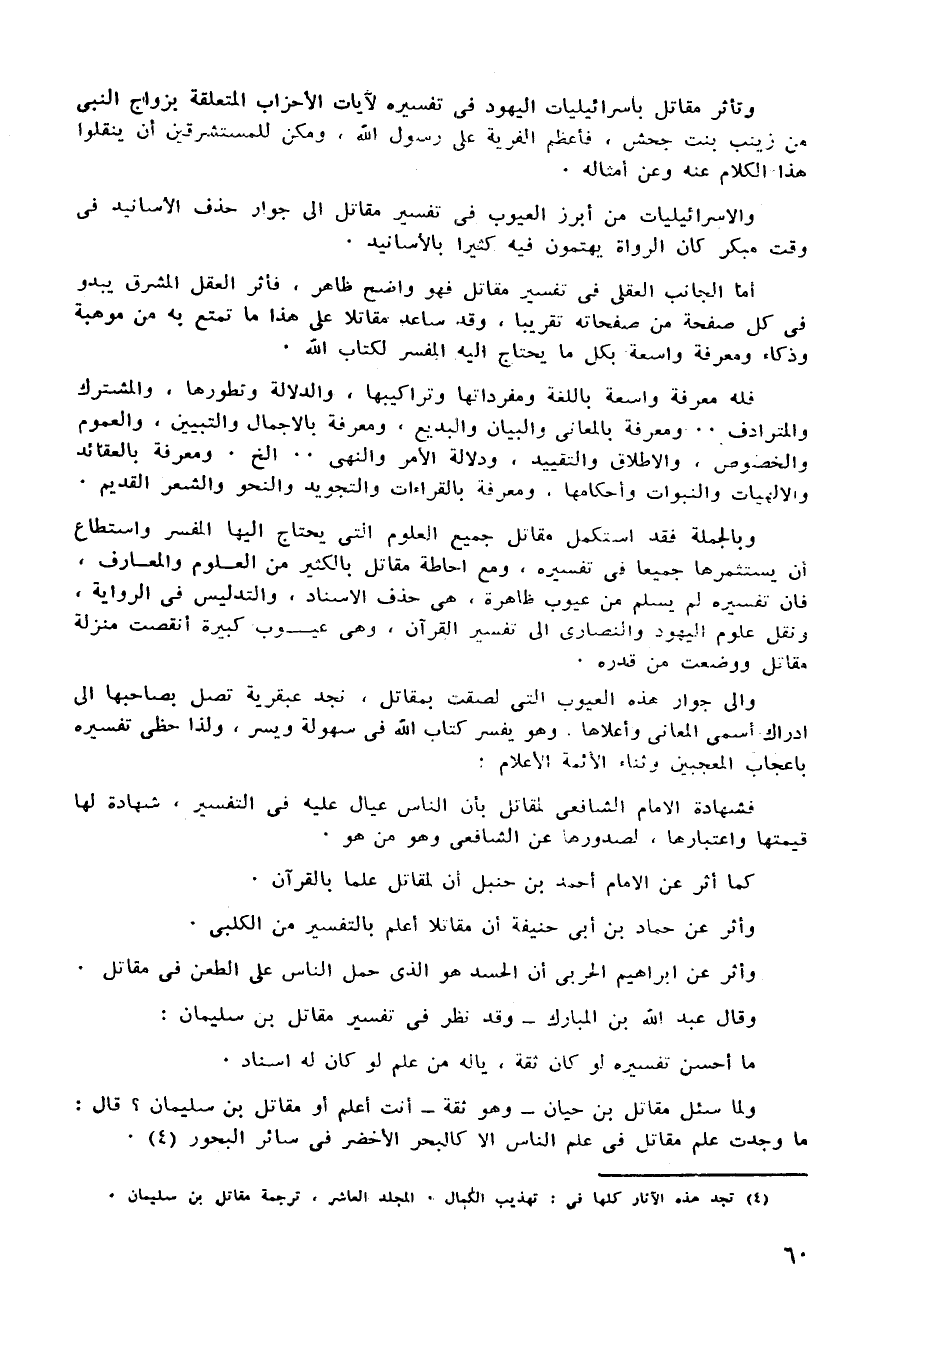 وتأثر مقاتل باسرائيليات اليهود فى تفسيره لآيات الأحزاب المتعلقة بزواج النبى
من زينب بنت جحش ، فأعظم الفرية على رسول الله ، ومكن للمستشرقين أن ينقلوا
هذا الكلام عنه وعن أمثاله ٠
والاسرائيليات من أبرز العيوب فى تفسير مقاتل الى جوار حذف الاسانيد فى
وقت مبكر كان الرواة يهتمون فيه كثيرا بالأسانيد ٠
أما الجانب العقلى فى تفسير مقاتل فهو واضح ظاهر ، فأثر العقل المشرق يبدو
فى كل صفحة من صفحاته تقريبا ، وقد ساعد مقاتلا على هذا ما تمتع به من موهبة
وذكاء ومعرفة واسعة بكل ما يحتاج اليه المفسر لكتاب الله ٠
فله معرفة واسعة باللغة ومفرداتها وتراكيبها ، والدلالة وتطورها ، والمشترك
والمترادف ٠٠ ومعرفة بالمعانى والبيان والبديع ، ومعرفة بالاجمال والتبيين ، والعموم
والخصوص ، والاطلاق والتقييد ، ودلالة الأمر والنهى ٠٠ الخ ٠ ومعرفة بالعقائد
والالهيات والنبوات وأحكامها ، ومعرفة بالقراءات والتجويد والنحو والشعر القديم ٠
وبالجملة فقد استكمل مقاتل جميع العلوم التى يحتاج اليها المفسر واستطاع
أن يستثمرها جميعا فى تفسيره ، ومع احاطة مقاتل بالكثير من العـلوم والمعـارف ،
فان تفسيره لم يسلم من عيوب ظاهرة ، هى حذف الاسناد ، والتدليس فى الرواية ،
ونقل علوم اليهود والنصارى الى تفسير القرآن ، وهى عيـــوب كبيرة أنقصت منزلة
مقاتل ووضعت من قدره ٠
والى جوار هذه العيوب التى لصقت بمقاتل ، نجد عبقرية تصل بصاحبها الى
ادراك أسمى المعانى وأعلاها . وهو يفسر كتاب الله فى سهولة ويسر ، ولذا حظى تفسيره
باعجاب المعجبين وثناء الأئمة الأعلام :
فشهادة الامام الشافعى لمقاتل بأن الناس عيال عليه فى التفسير ، شهادة لها
قيمتها واعتبارها ، لصدورها عن الشافعى وهو من هو ٠
كما أثر عن الامام أحمد بن حنبل أن لمقاتل علما بالقرآن ٠
وأثر عن حماد بن أبى حنيفة أن مقاتلا أعلم بالتفسير من الكلبى ٠
وأثر عن ابراهيم الحربى أن الحسد هو الذى حمل الناس على الطعن فى مقاتل ٠
وقال عبد الله بن المبارك ــ وقد نظر فى تفسير مقاتل بن سليمان :
ما أحسن تفسيره لو كان ثقة ، ياله من علم لو كان له اسناد ٠
ولما سئل مقاتل بن حيان ــ وهو ثقة ــ أنت أعلم أو مقاتل بن سليمان ؟ قال :
ما وجدت علم مقاتل فى علم الناس الا كالبحر الأخضر فى سائر البحور (٤) ٠
(٤) تجد هذه الآثار كلها فى : تهذيب الكمال ٠ المجلد العاشر ، ترجمة مقاتل بن سليمان ٠
٦٠